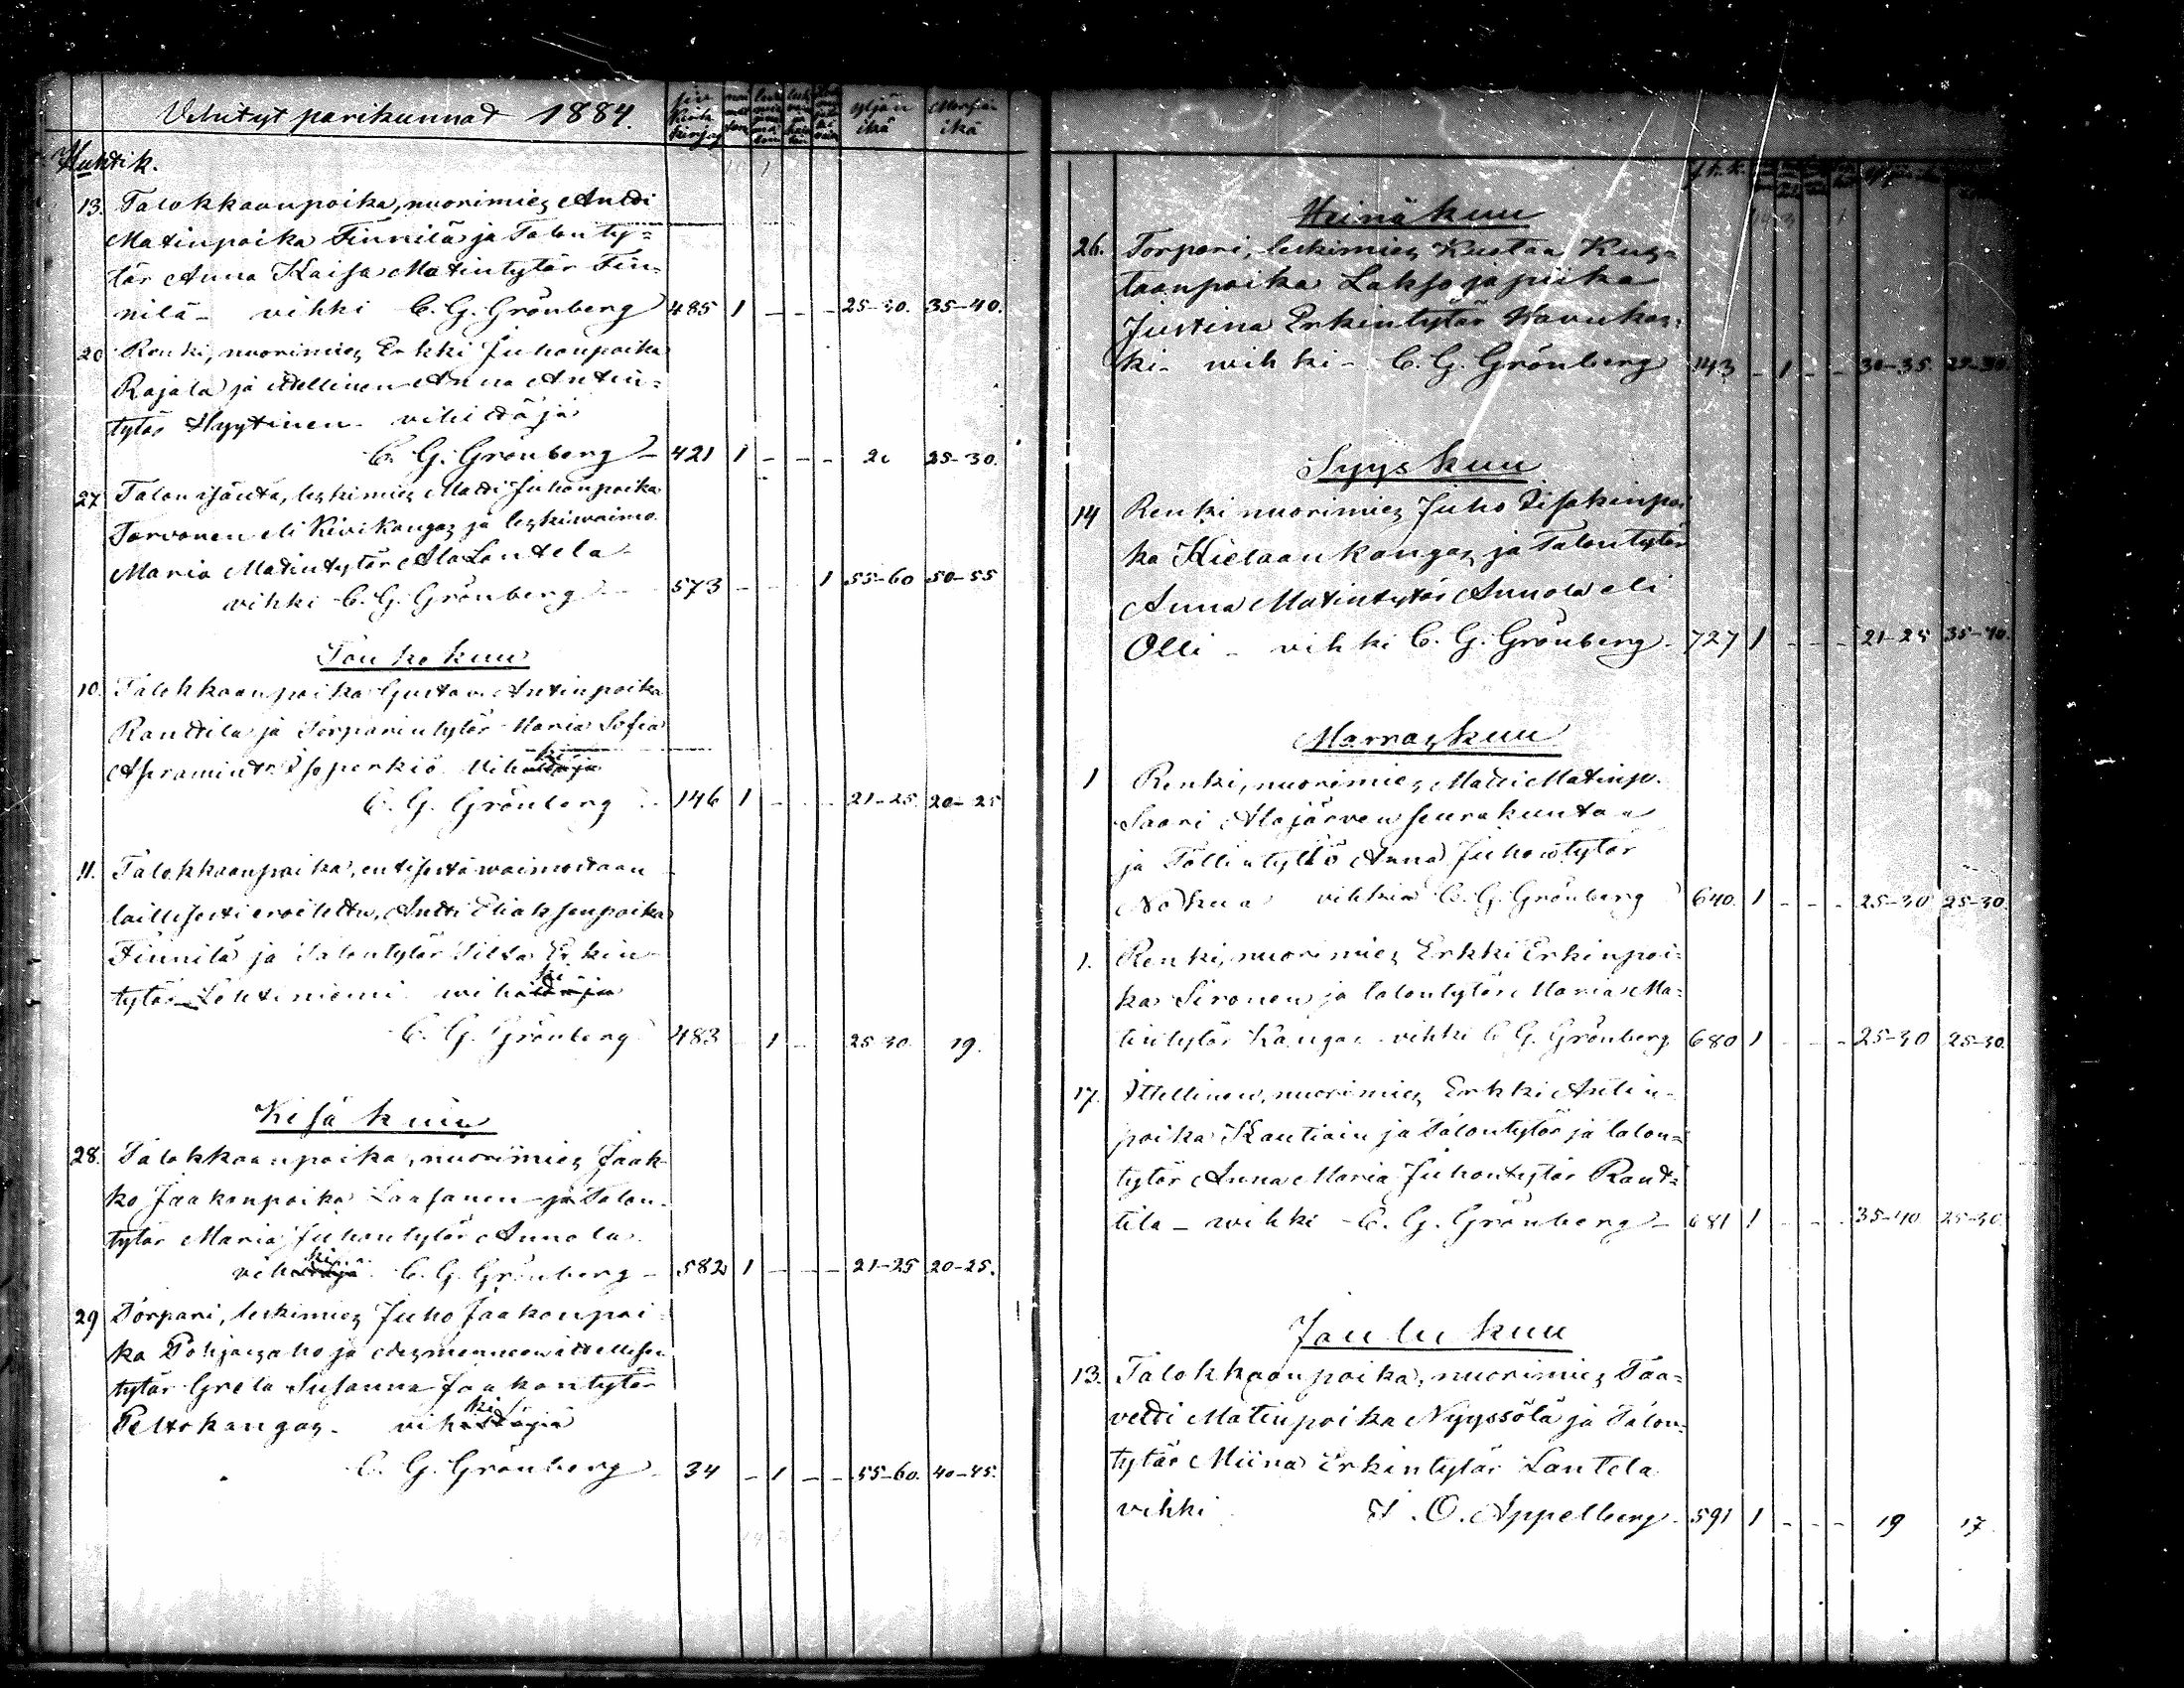 Vihityt parikunnat 1884.
siv. Kirk. kirjaj
yljän ikä
Morsian ikä
Huhtik.
13. Talokkaanpoika, nuorimies Antti
Matinpoika Finnilä ja Talon ty=
tär Anna Kaisa Matintytär Fin=
nilä - vihki C. G. Grönberg 485 1 - - - 25-30. 35-40.
20 Renki, nuorimies Erkki Juhonpoika
Rajala ja itellinen Anna Antin=
tytär Hyytinen - vihittäjä
C. G. Grönberg - 421 1 - - - 25-30.
27 Talon isäntä, leskimies Matti Juhonpoika
Tarvonen eli Kivikangas ja leskiwaimo
Maria Matintytär Ala Lantela -
vihki C. G. Grönberg 573 - - 1 55-60 50-55
Toukokuu
10. Talokkaanpoika Gustav Antinpoika
Ranttila ja Torparintytär Maria Sofia
Aframintr Isoperkiö vihki
C. G. Grönberg 146 1 - - - 21-25 20-25
11. Talokkaanpoika, entisestä waimostaan
laillisesti eroitettu, Antti Eliaksenpoika
Finnilä ja Talontytär Erkin
tytär Lehtiniemi wihki
C. G. Grönberg 483 1 - 25-30 19.
Kesäkuu
28. Talokkaanpoika, nuorimies Jaak=
ko Jaakonpoika Laasanen ja Talon=
tytär Maria Juhontytär Annola
vihki C. G. Grönberg - 582 1 - - - 21-25 20-25.
29 Torpari, leskimies Juho Jaakonpoi=
ka Pohjasaho ja edesmenneen ittellisen
tytär Greta Susanna Jaakontytär
Peltokangas. vihki
C. G. Grönberg - 34 - 1 - - 55-60. 40-45.
Heinäkuu
26. Torpari, leskimies Kustaa Kus=
taanpoika Lakso ja piika
Justina Erkintytär Kavukos=
ki - wihki - C. G. Grönberg 143 - 1 - - 30-35. 25-30.
Syyskuu
14 Renki nuorimies Juho Iisakinpoi
ka Kielaankangas ja Talontytär
Anna Matintytär Annola eli
Olli - vihki C. G. Grönberg. 727 1 - - - 21-25 35-40.
Marraskuu
1 Renki, nuorimies Matti Matinp.
Saari Alajärven seurakuntaa
ja Anna Juhontytär
Nokua C. G. Grönberg 640. 1 - - - 25-30 25-30.
1. Renki, nuorimies Erkki Erkinpoi=
ka Sironen ja talontytär Maria Ma=
tintytär Kangas - vihki C. G. Grönberg 680 1 - - - 25-30 25-30.
17. Ittellinen, nuorimies Erkki Antin-
poika Kautiain ja Talontytär ja talon=
tytär Anna Maria Juhontytär Rant=
tila - wihki - C. G. Grönberg - 681 1 - - - 35-40 25-30
Joulukuu
13. Talokkaanpoika, nuorimies Taa=
vetti Matinpoika Nyyssölä ja Talon=
tytär Miina Erkintytär Lantela
vihki O. Appelberg - 591 1 - - - 19 17.